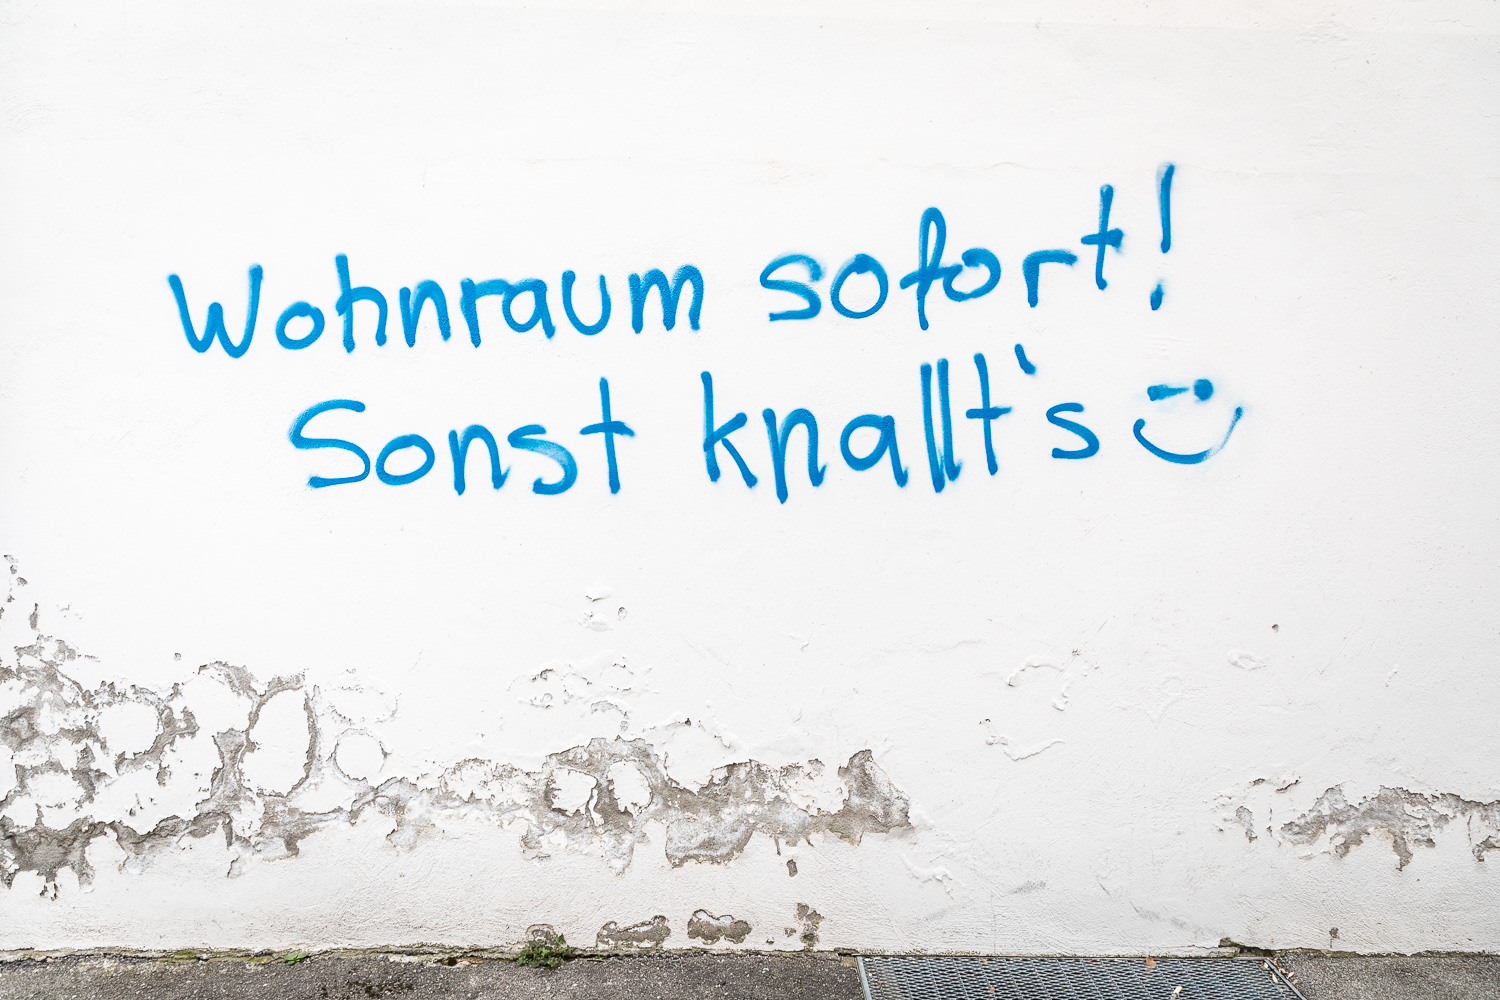 Wohnraum sofort!
Sonst knallt's